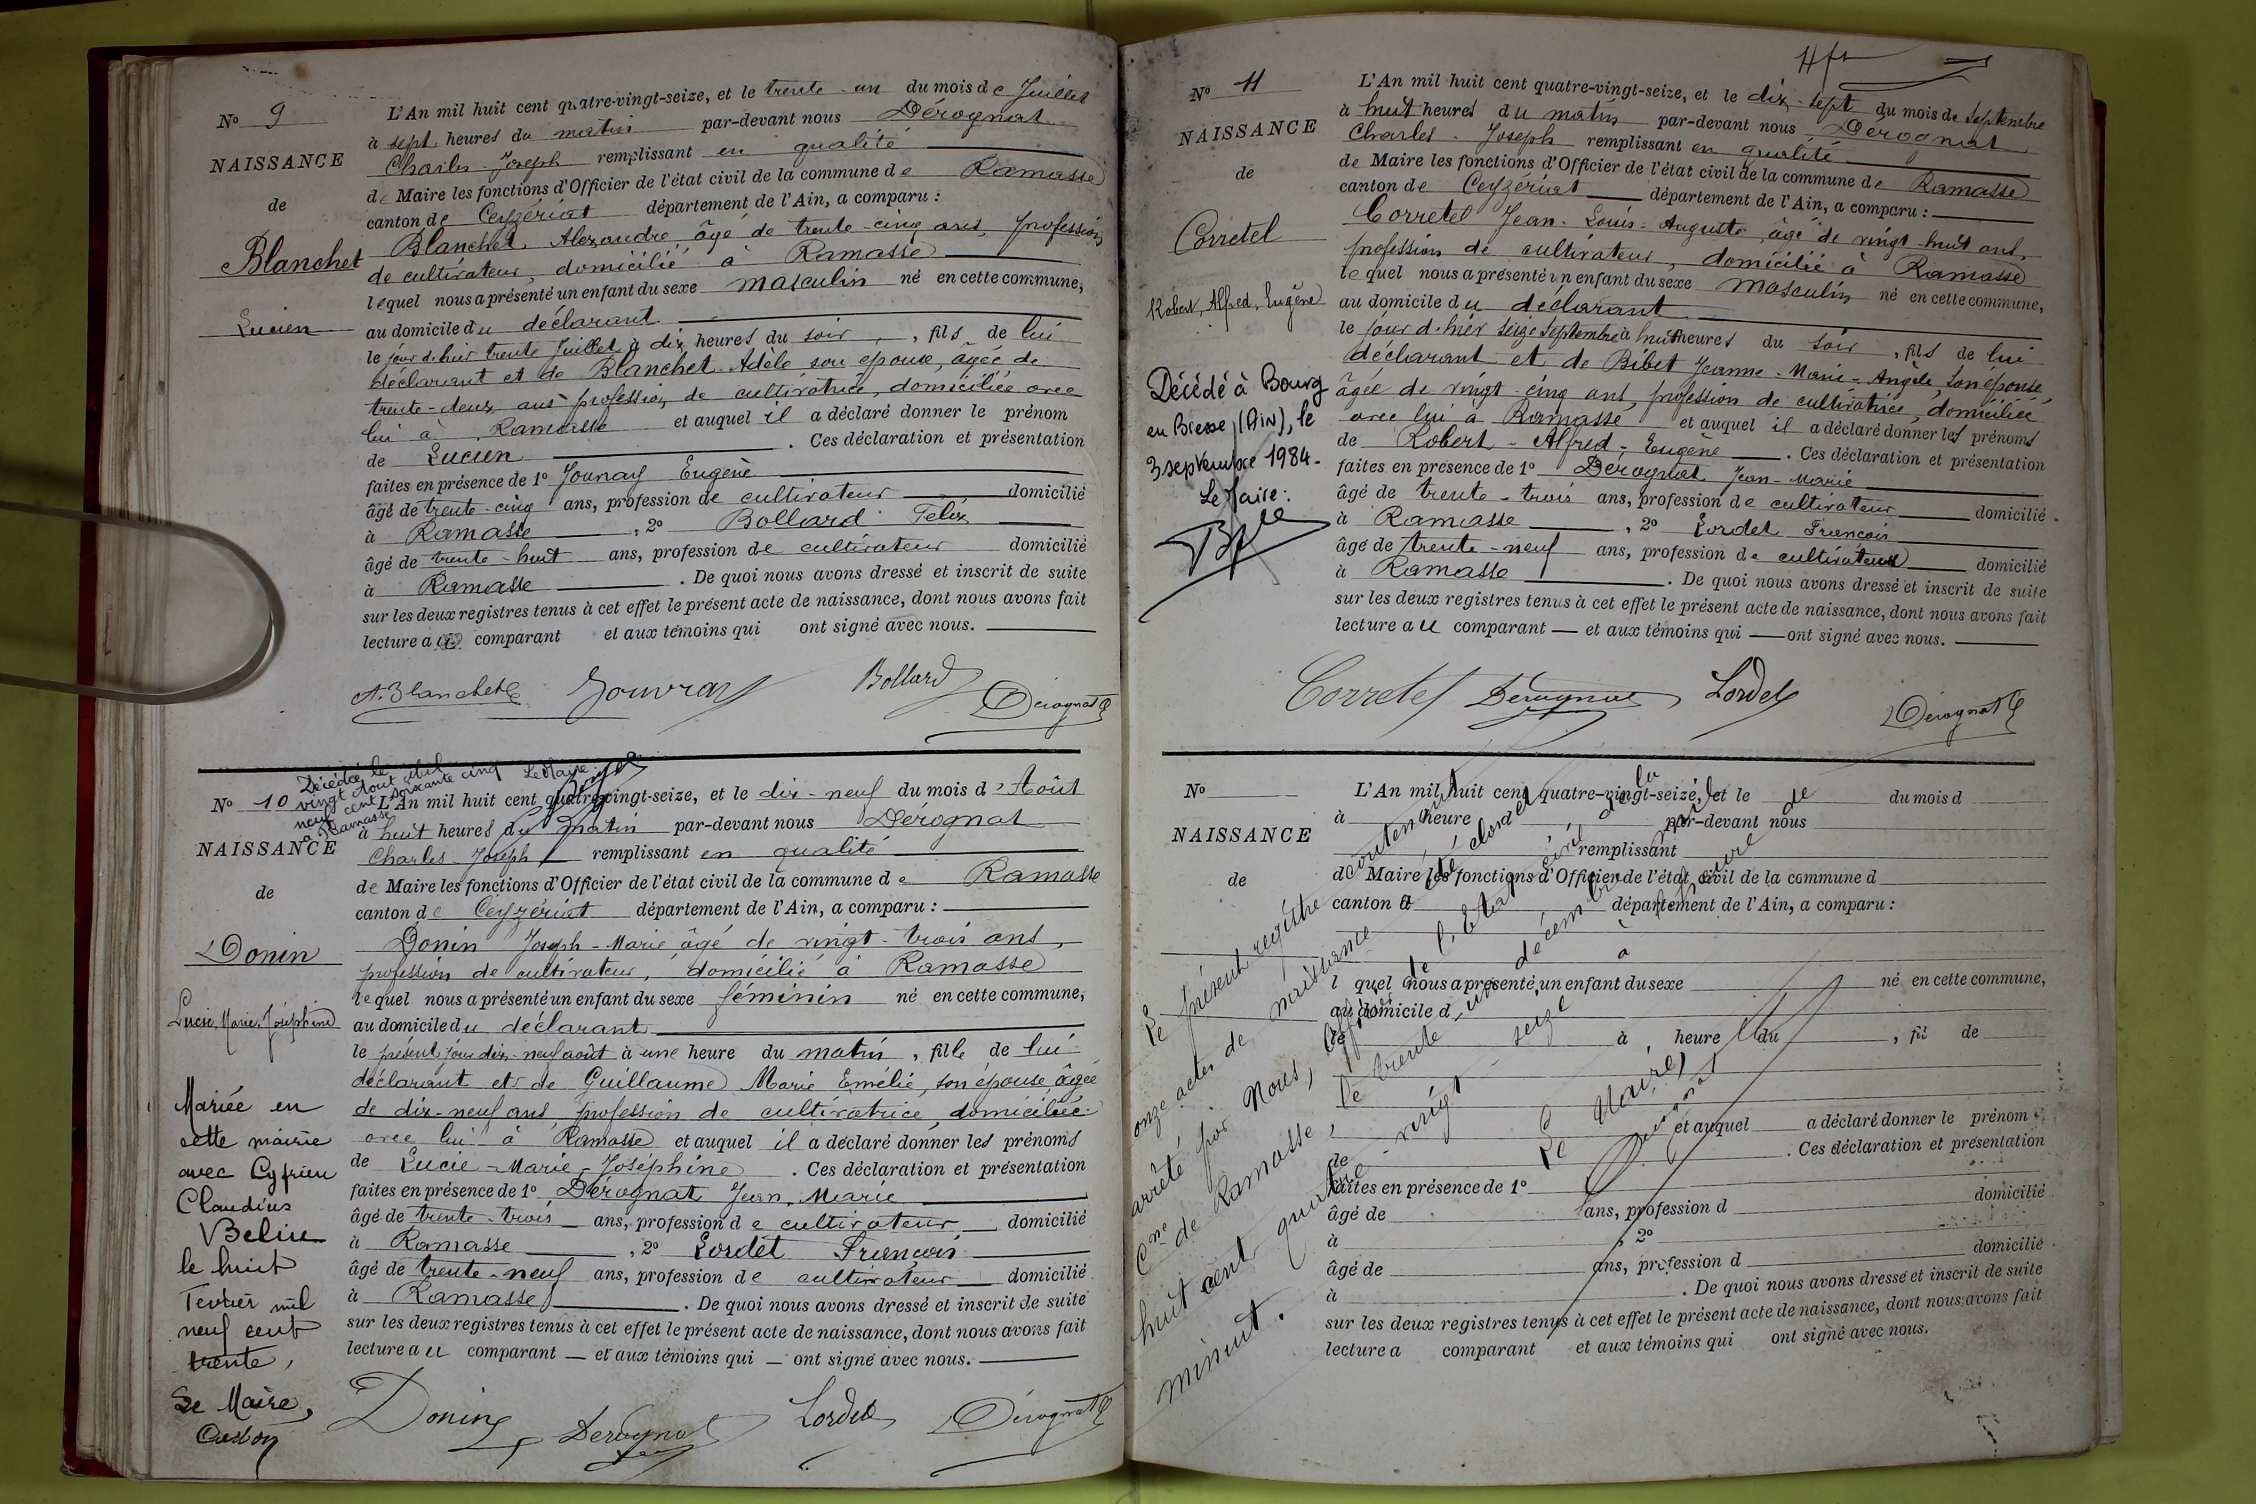 N° 9
NAISSANCE
de
Blanchet
Lucien
L'An mil huit cent quatre-vingt-seize, et le trente-un du mois de Juillet
à sept heures du matin par-devant nous Dérognat
Charles-Joseph remplissant en qualité
de Maire les fonctions d'Officier de l'état civil de la commune de Ramasse
canton de Ceyzériat département de l'Ain, a comparu :
Blanchet Alexandre âgé de trente-cinq ans, profession
de cultivateur, domicilié à Ramasse
lequel nous a présenté un enfant du sexe masculin né en cette commune,
au domicile du déclarant
le jour d'hier trente Juillet à dix heures du soir, fils de lui
déclarant et de Blanchet Adèle son épouse, âgée de
trente-deux ans profession de cultivatrice, domiciliée avec
lui à Ramasse et auquel il a déclaré donner le prénom
de Lucien . Ces déclaration et présentation
faites en présence de 1° Jouvray Eugène
âgé de trente-cinq ans, profession de cultivateur domicilié
à Ramasse , 2° Bollard Felix
âgé de trente-huit ans, profession de cultivateur domicilié
à Ramasse . De quoi nous avons dressé et inscrit de suite
sur les deux registres tenus à cet effet le présent acte de naissance, dont nous avons fait
lecture au comparant et aux témoins qui ont signé avec nous.
A. Blanchet Jouvray Bollard Dérognat
Décédée le
vingt Août mil
neuf cent soixante cinq
à Ramasse
Le Maire
N° 10
NAISSANCE
de
Donin
Lucie, Marie, Joséphine
Mariée en
cette mairie
avec Cyprien
Claudius
Belin
le huit
Février mil
neuf cent
trente,
Le Maire,
L'An mil huit cent quatre-vingt-seize, et le dix-neuf du mois d'Août
à huit heures du matin par-devant nous Dérognat
Charles-Joseph remplissant en qualité
de Maire les fonctions d'Officier de l'état civil de la commune de Ramasse
canton de Ceyzériat département de l'Ain, a comparu :
Donin Joseph-Marie âgé de vingt-trois ans,
profession de cultivateur, domicilié à Ramasse
lequel nous a présenté un enfant du sexe féminin né en cette commune,
au domicile du déclarant
le présent jour dix-neuf août à une heure du matin, fille de lui
déclarant et de Guillaume Marie Emélie, son épouse, âgée
de dix-neuf ans, profession de cultivatrice, domiciliée
avec lui à Ramasse et auquel il a déclaré donner les prénoms
de Lucie-Marie-Joséphine . Ces déclaration et présentation
faites en présence de 1° Dérognat Jean-Marie
âgé de trente-trois ans, profession de cultivateur domicilié
à Ramasse , 2° Lordet François
âgé de trente-neuf ans, profession de cultivateur domicilié
à Ramasse . De quoi nous avons dressé et inscrit de suite
sur les deux registres tenus à cet effet le présent acte de naissance, dont nous avons fait
lecture au comparant et aux témoins qui ont signé avec nous.
Donin Derognat Lordet Dérognat
N° 11
NAISSANCE
de
Corretel
Robert, Alfred, Eugène
Décédé à Bourg
en Bresse, (AIN), le
3 septembre 1984.
Le Maire :
L'An mil huit cent quatre-vingt-seize, et le dix-sept du mois de Septembre
à huit heures du matin par-devant nous Dérognat
Charles-Joseph remplissant en qualité
de Maire les fonctions d'Officier de l'état civil de la commune de Ramasse
canton de Ceyzériat département de l'Ain, a comparu :
Corretel Jean-Louis-Auguste âgé de vingt-huit ans,
profession de cultivateur, domicilié à Ramasse
lequel nous a présenté un enfant du sexe masculin né en cette commune,
au domicile du déclarant
le jour d'hier seize septembre à huit heures du soir, fils de lui
déclarant et de Bibet Jeanne-Marie-Angèle, son épouse
âgée de vingt-cinq ans, profession de cultivatrice, domiciliée
avec lui à Ramasse et auquel il a déclaré donner les prénoms
de Robert-Alfred-Eugène . Ces déclaration et présentation
faites en présence de 1° Dérognat Jean-Marie
âgé de trente-trois ans, profession de cultivateur domicilié
à Ramasse , 2° Lordet François
âgé de trente-neuf ans, profession de cultivateur domicilié
à Ramasse . De quoi nous avons dressé et inscrit de suite
sur les deux registres tenus à cet effet le présent acte de naissance, dont nous avons fait
lecture au comparant et aux témoins qui ont signé avec nous.
Corretel Derognat Lordet Dérognat
N°
NAISSANCE
de
L'An mil huit cent quatre-vingt-seize, et le du mois d
à heure par-devant nous
remplissant
d Maire les fonctions d'Officier de l'état civil de la commune d
canton d département de l'Ain, a comparu :
l quel nous a présenté un enfant du sexe né en cette commune,
au domicile d
le à heure du , fil de
et auquel a déclaré donner le prénom
de . Ces déclaration et présentation
faites en présence de 1°
âgé de ans, profession d domicilié
à , 2°
âgé de ans, profession d domicilié
à . De quoi nous avons dressé et inscrit de suite
sur les deux registres tenus à cet effet le présent acte de naissance, dont nous avons fait
lecture a comparant et aux témoins qui ont signé avec nous.
Le présent registre contenant
onze actes de naissance a été clos et
arrêté par Nous, officier de l'état civil de la
Cne de Ramasse, le trente-un décembre mil
huit cent quatre vingt seize à l'heure de
minuit.
Le Maire,
Dérognat